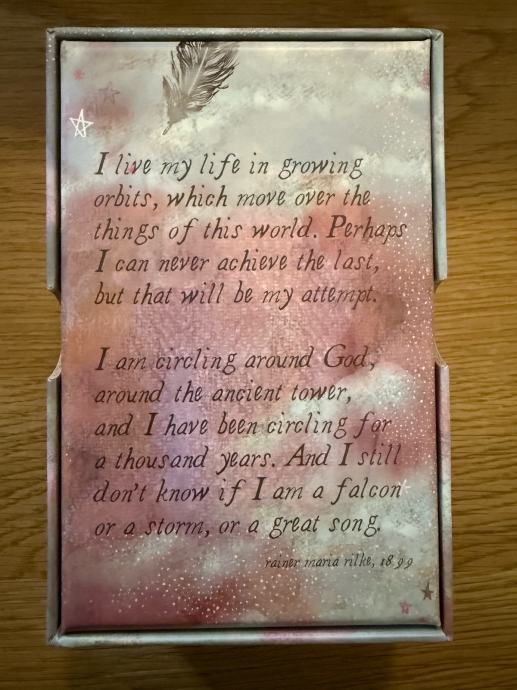 I live my life in growing
orbits, which move over the
things of this world. Perhaps
I can never achieve the last,
but that will be my attempt.
I am circling around God,
around the ancient tower,
and I have been circling for
a thousand years. And I still
don't know if I am a falcon
or a storm, or a great song.
rainer maria rilke, 1899